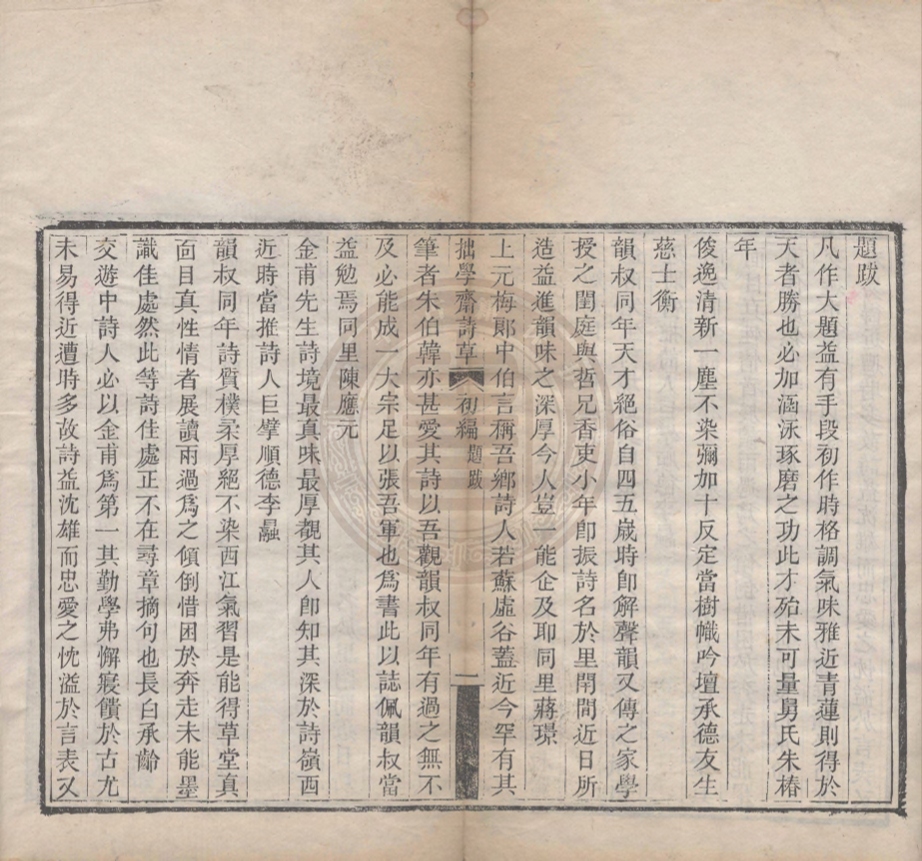 題跋
凡作大題益有手段初作時格調氣味雅近青蓮則得於
天者勝也必加涵泳琢磨之功此才殆未可量舅氏朱椿
年
俊逸清新一塵不染彌加十反定當樹幟吟壇承德友生
慈士衡
韻叔同年天才絕俗自四五歲時卽解聲韻又傳之家學
授之閨庭與哲兄香吏小年卽振詩名於里閈間近日所
造益進韻味之深厚今人豈一能企及耶同里蔣璟
上元梅郞中伯言稱吾鄉詩人若蘇虛谷蓋近今罕有其
拙學齋詩草 初編 題跋 一
筆者朱伯韓亦甚愛其詩以吾觀韻叔同年有過之無不
及必能成一大宗足以張吾軍也爲書此以誌佩韻叔當
益勉焉同里陳應元
金甫先生詩境最真味最厚觀其人卽知其深於詩嶺西
近時當推詩人巨擘順德李
韻叔同年詩質樸柔厚絕不染西江氣習是能得草堂真
面目真性情者展讀兩過爲之傾倒惜困於奔走未能墨
識佳處然此等詩佳處正不在尋章摘句也長白承齡
交遊中詩人必以金甫爲第一其勤學弗懈寢饋於古尤
未易得近遭時多故詩益沈雄而忠愛之忱溢於言表又